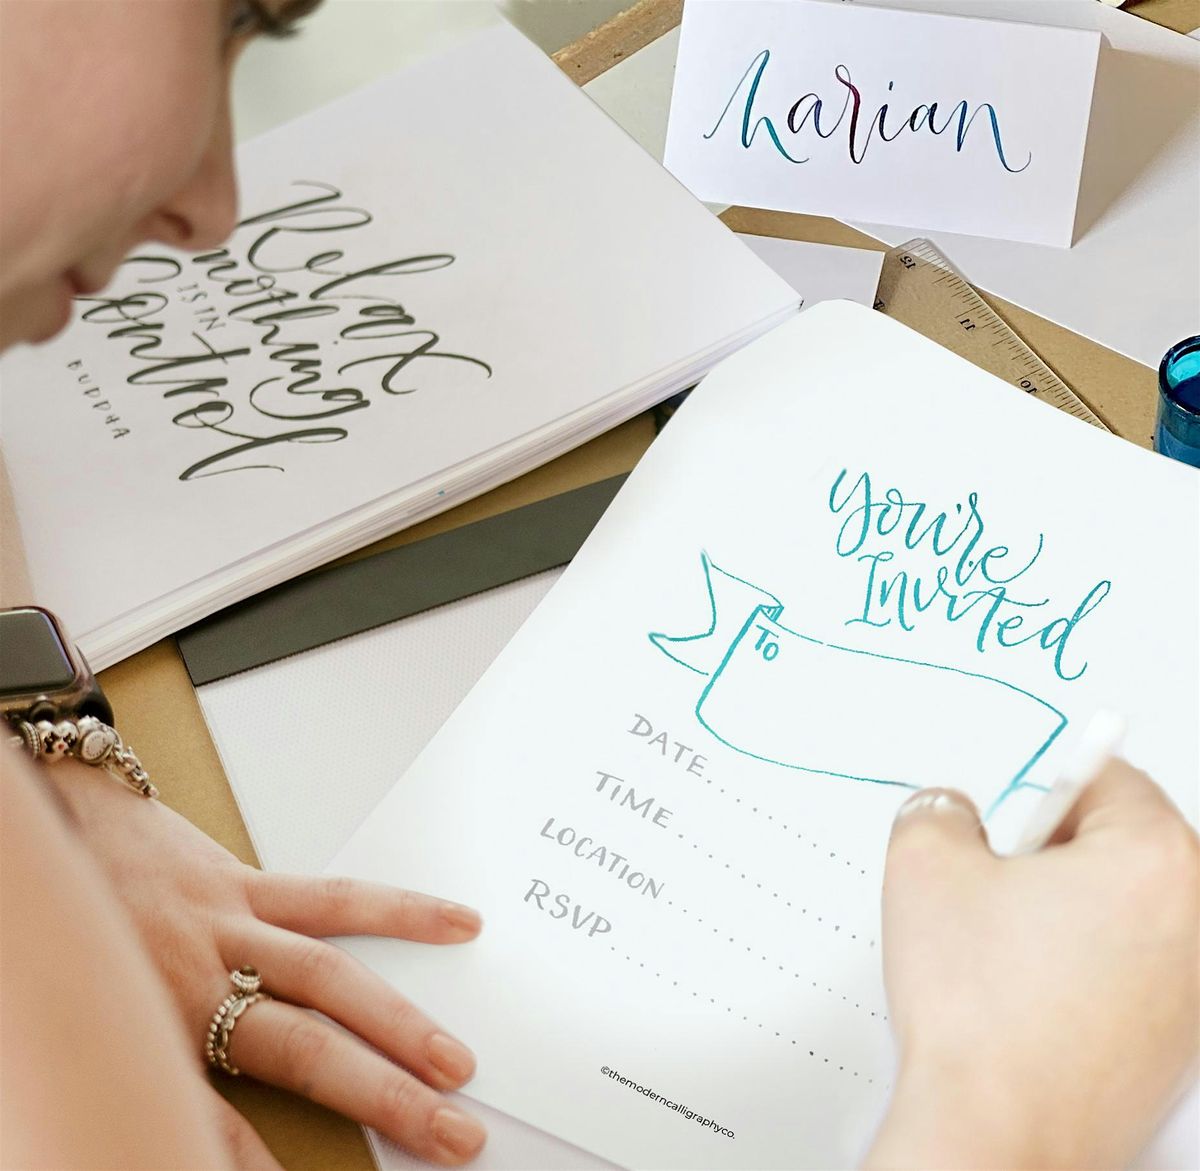 Marian
Relax
nothing
IS IN
Control
BUDDHA
15
11
10
You're
Invited
TO
DATE
TIME
LOCATION
RSVP
©themoderncalligraphyco.